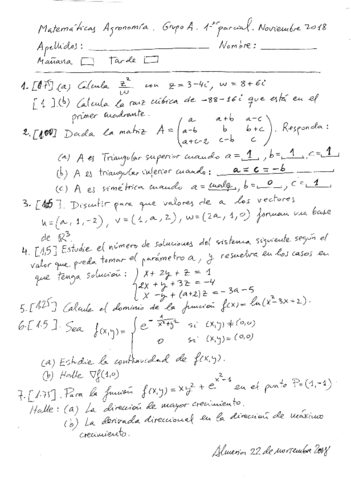 Matemáticas Agronomía. Grupo A. 1er parcial. Noviembre 2018
Apellidos: Nombre:
Mañana Tarde
1. (a) Calcula z²/w con z = 3-4i, w = 8+6i
[1] (b) Calcula la raíz cúbica de -88-16i que está en el
primer cuadrante.
2. Dada la matriz A = ( a a+b a-c
a-b b b+c
a+c-2 c-b c ). Responda:
(a) A es Triangular superior cuando a = 1, b = 1, c = 1
(b) A es triangular inferior cuando: a = c = -b
(c) A es simétrica cuando a = , b = 0, c = 1
3. Discutir para que valores de a los vectores
u = (a, 1, -2), v = (1, a, 2), w = (2a, 1, 0) forman una base
de ℝ³
4. [1.5] Estudie el número de soluciones del sistema siguiente según el
valor que pueda tomar el parámetro a, y resuelva en los casos en
que tenga solución: { x + 2y + z = 1
2x + y + 3z = -4
x - y + (a+2)z = -3a-5
5. [1.25] Calcule el dominio de la función f(x) = ln(x²-3x+2).
6. [1.5]. Sea f(x,y) = { si (x,y) ≠ (0,0)
0 si (x,y) = (0,0)
(a) Estudie la continuidad de f(x,y).
(b) Halle ∇f(1,0)
7. [1.75]. Para la función f(x,y) = xy² + e^(x²-1) en el punto P=(1,-1).
Halle: (a) La dirección de mayor crecimiento.
(b) La derivada direccional en la dirección de máximo
crecimiento.
Almería 22 de noviembre 2018